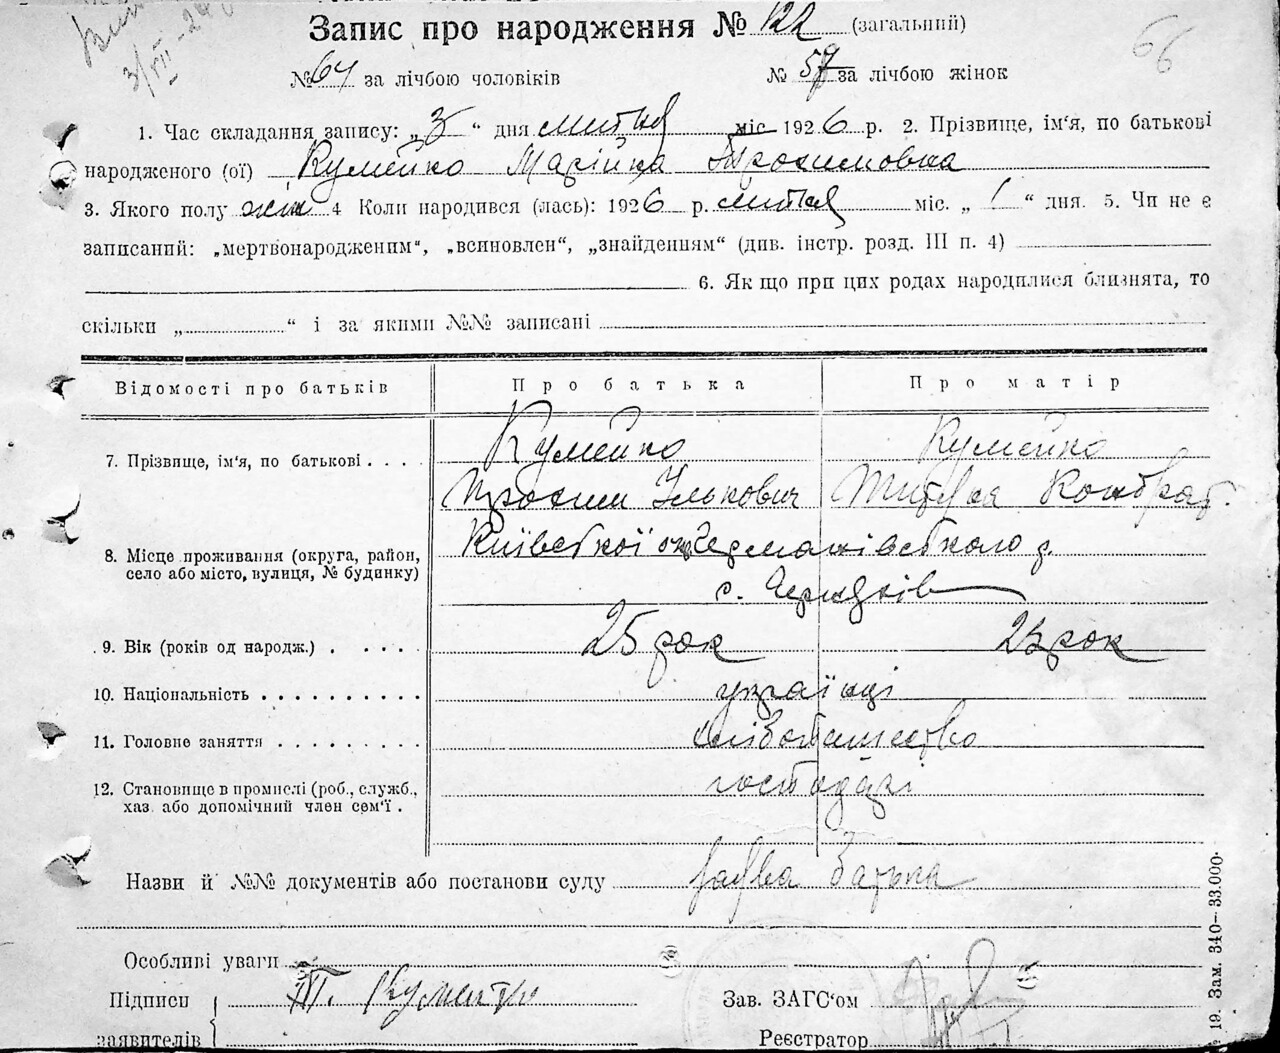 Запис про народження № 122 (загальний)
№ 64 за лічбою чоловіків № 59 за лічбою жінок
66
1. Час складання запису: „ 3 “ дня липня міс 1926 р. 2. Прізвище, ім'я, по батькові
народженого (ої) Кумейко Марійка Трохимовна
3. Якого полу жін 4 Коли народився (лась): 1926 р. липня міс. „ 1 “ дня. 5. Чи не є
записаний: „мертвонародженим“, „всиновлен“, „знайденням“ (див. інстр. розд. III п. 4)
6. Як що при цих родах народилися близнята, то
скільки „ “ і за якими №№ записані
Відомості про батьків Про батька Про матір
7. Прізвище, ім'я, по батькові . . . . Кумейко Кумейко
Трохим Ількович Кондрат.
8. Місце проживання (округа, район, село або місто, вулиця, № будинку) Київської окр Германівського р.
с.
9. Вік (років од народж.) . . . . . 25 рок рок
10. Національність . . . . . . . . . . українці
11. Головне заняття . . . . . . . . .
12. Становище в промислі (роб., служб., хаз. або допомічний член сем'ї . господарі
Назви й №№ документів або постанови суду заява батька
Особливі уваги
Підписи Т. Кумейко Зав. ЗАГС'ом
заявителів Реєстратор
19. Зам. 340—33.000.